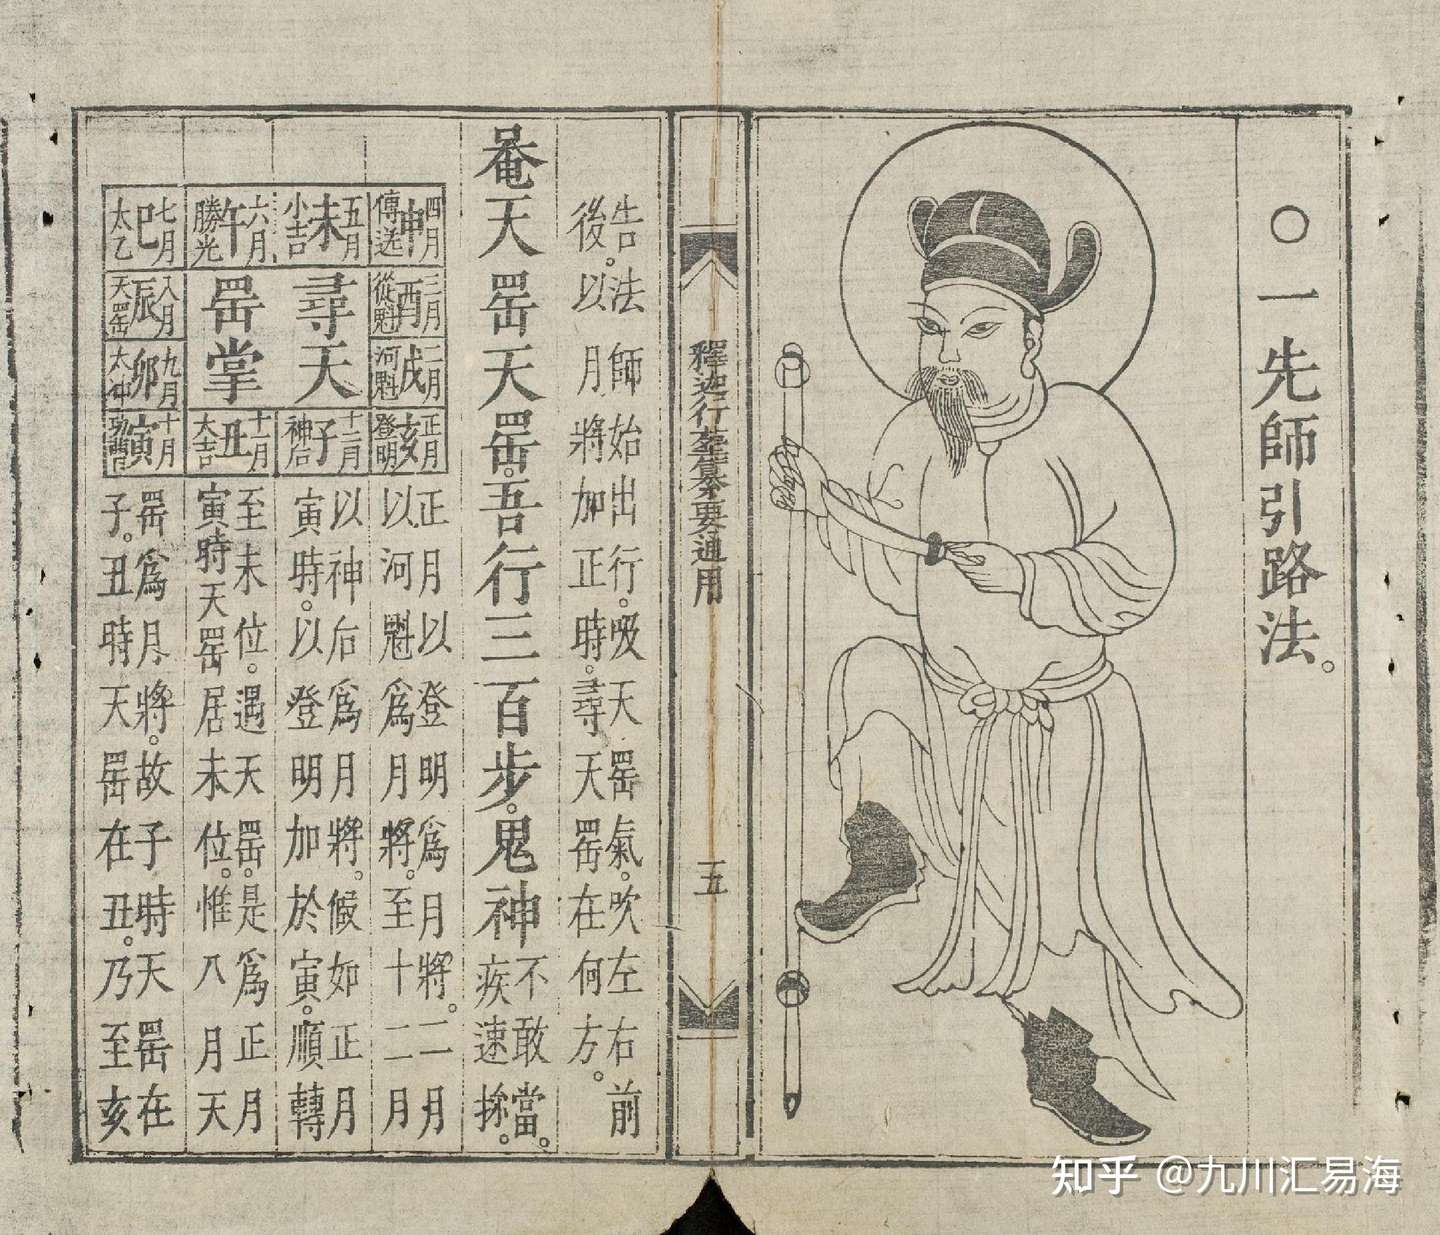 ○一先師引路法。
釋迦行
要通用
五
告法師始出行。吸天罡氣。吹左右前
後。以月將加正時。尋天罡在何方。
唵天罡天罡。吾行三百步。鬼神
不敢當。
疾速
四月申傳送
三月酉從魁
二月戌河魁
正月亥登明
五月未小吉
尋天
十二月子神后
六月午勝光
罡掌
十一月丑大吉
七月巳太乙
八月辰天罡
九月卯太冲
十月寅功曹
正月以登明爲月將。二月
以河魁爲月將。至十二月
以神后爲月將。候如正月
寅時。以登明加於寅。順轉
至未位。遇天罡。是爲正月
寅時天罡居未位。惟八月天
罡爲月將。故子時天罡在
子。丑時天罡在丑。乃至亥
知乎 @九川汇易海